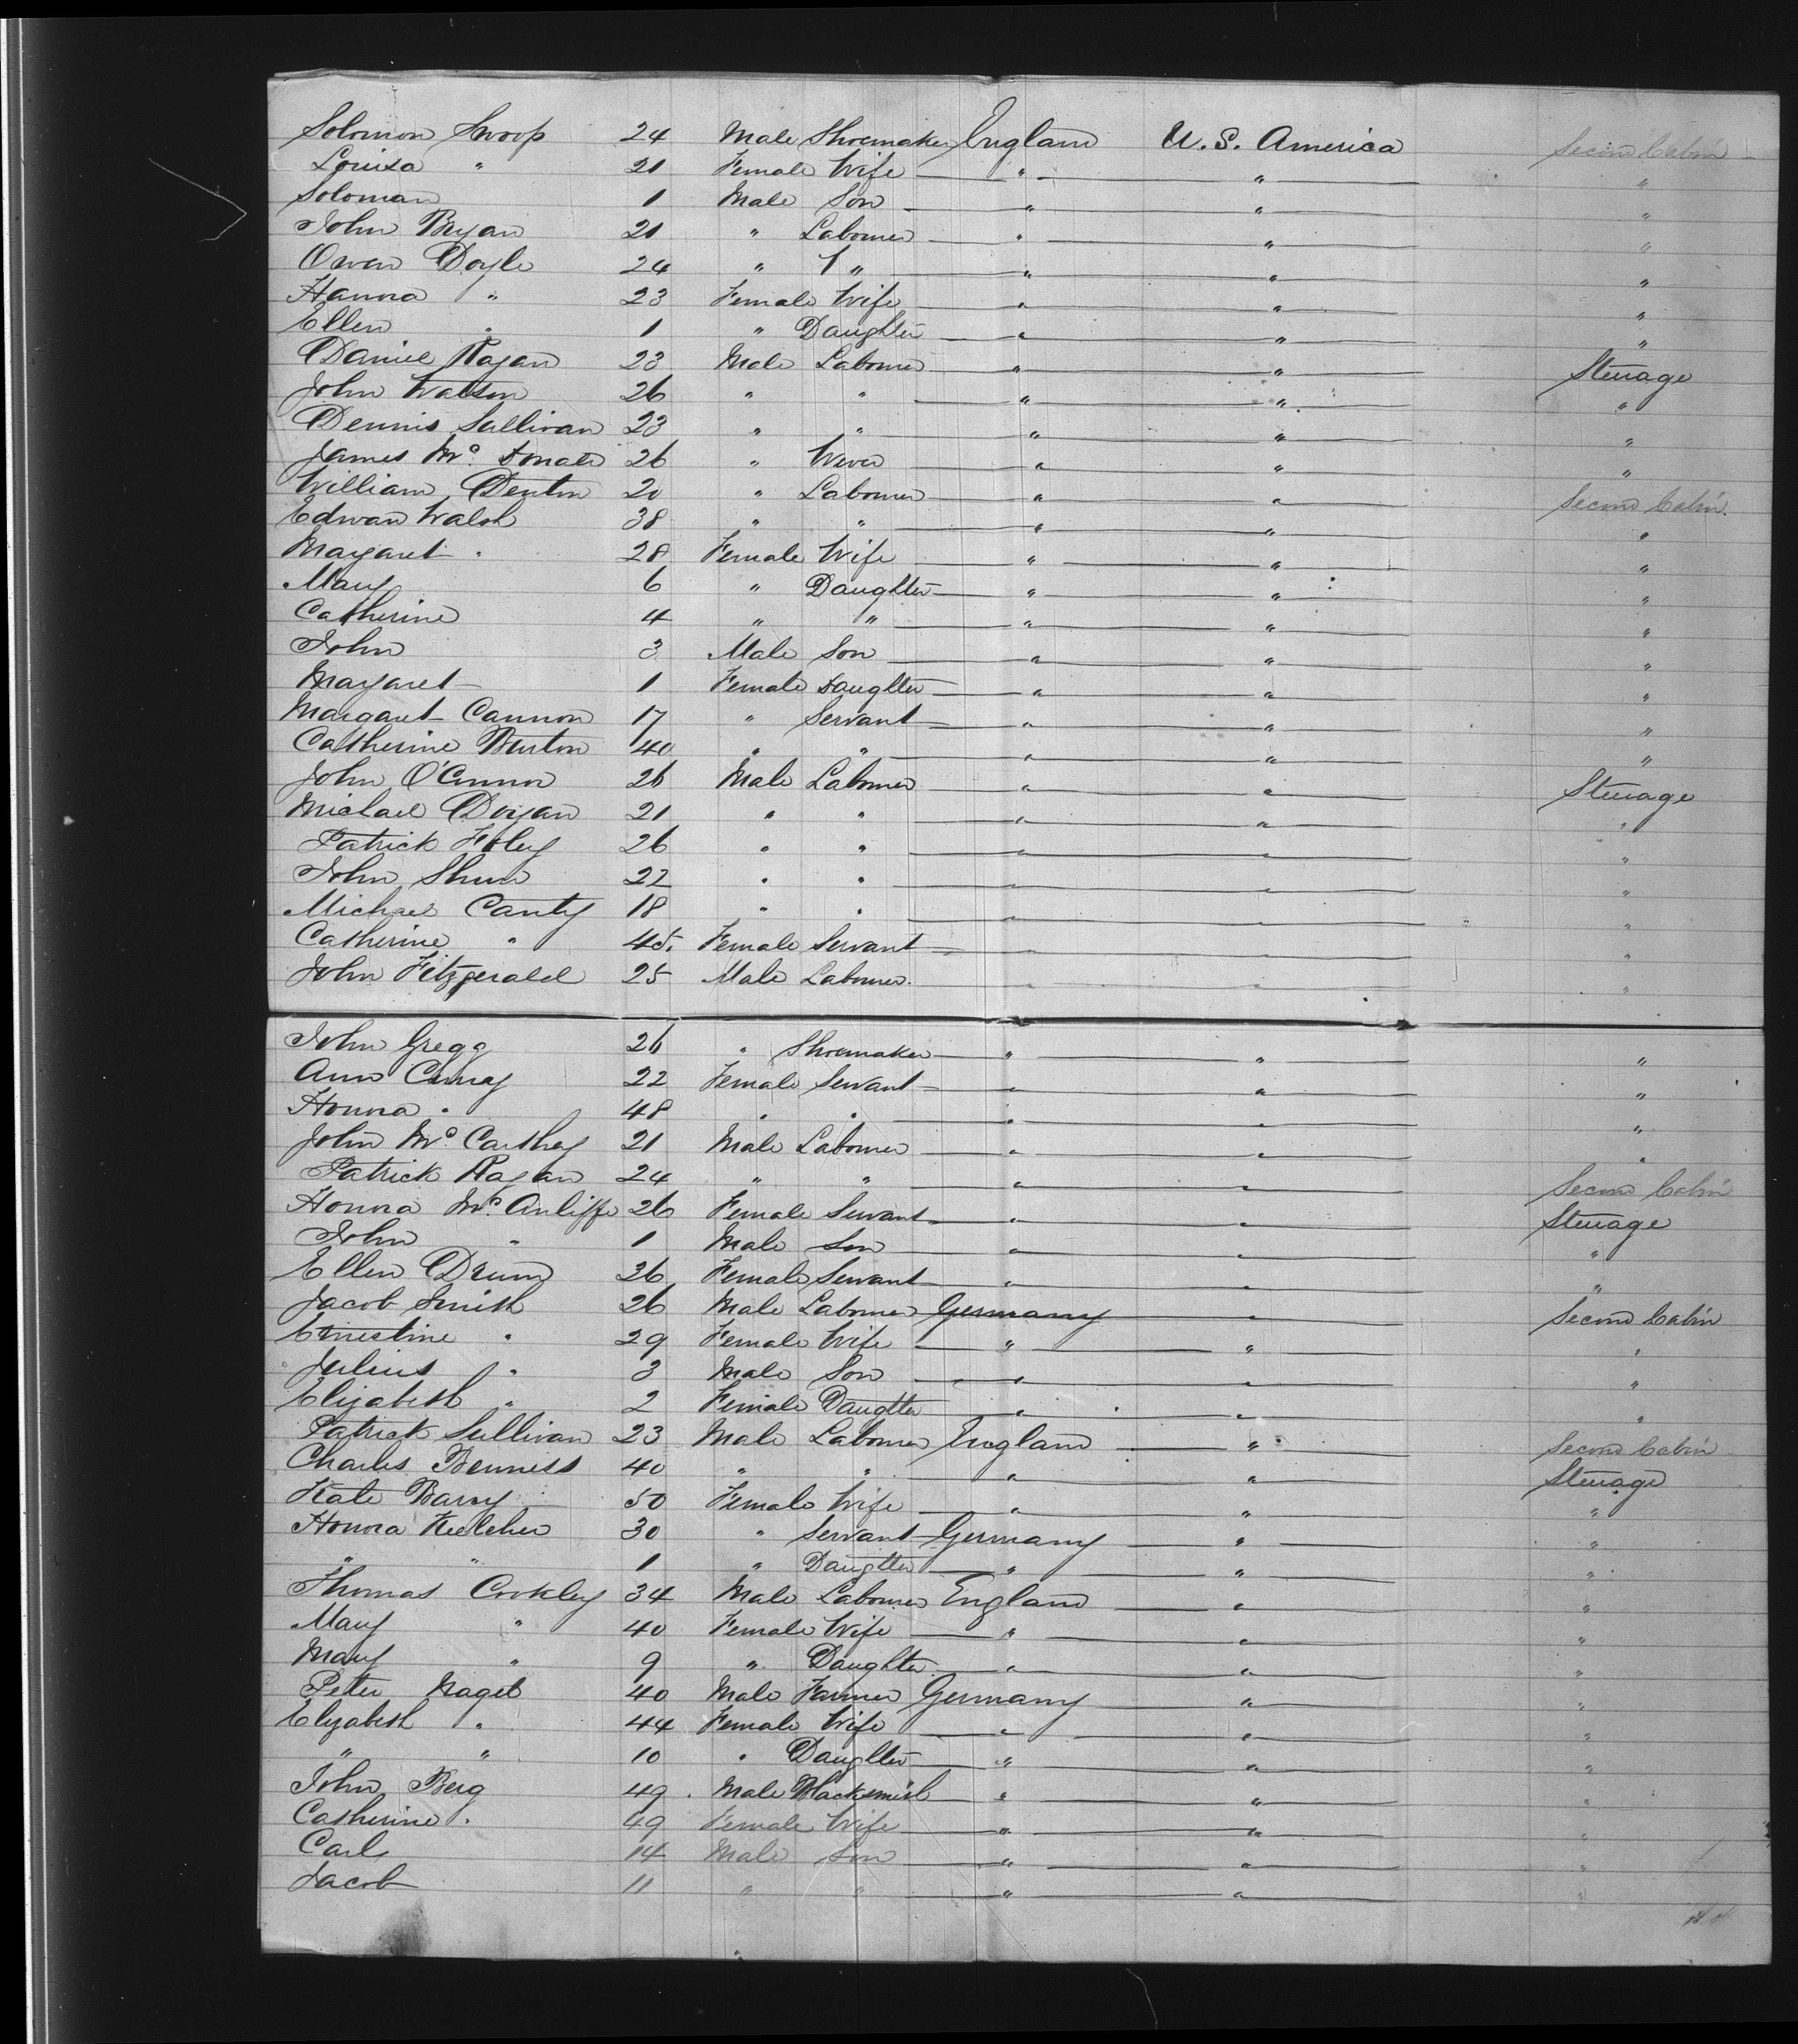 Solomon Swoop 24 Male Shoemaker England U.S. America Second Cabin
Louisa " 21 Female Wife " " "
Soloman 1 Male Son " " "
John Bryan 21 " Labourer " " "
Owen Doyle 24 " " " " "
Hanna " 23 Female Wife " " "
Ellen " 1 " Daughter " " "
Daniel Ragan 23 Male Labourer " " Steerage
John Watson 26 " " " " "
Dennis Sullivan 23 " " " " "
James Mc Donald 26 " Wever " " "
William Denton 20 " Labourer " " Second Cabin
Edwan Walsh 38 " " " " "
Margaret " 28 Female Wife " " "
Mary 6 " Daughter " " "
Catherine 4 " " " " "
John 3 Male Son " " "
Margaret 1 Female Daughter " " "
Margaret Cannon 17 " Servant " " "
Catherine Burton 40 " " " " "
John O'Connor 26 Male Labourer " " Steerage
Michael Dorgan 21 " " " " "
Patrick Foley 26 " " " " "
John 22 " " " " "
Michael Canty 18 " " " " "
Catherine " 45 Female Servant " " "
John Fitzgerald 25 Male Labourer " " "
John Gregg 26 " Shoemaker " " "
Ann 22 Female Servant " " "
Honora " 48 " " " " "
John Mc Carthey 21 Male Labourer " " "
Patrick Ragan 24 " " " " Second Cabin
Honora Mc Auliffe 26 Female Servant " " Steerage
John " 1 Male Son " " "
Ellen 36 Female Servant " " "
Jacob Smith 26 Male Labourer Germany " Second Cabin
Ernestine " 29 Female Wife " " "
Julius " 3 Male Son " " "
Elizabeth " 2 Female Daugtter " " "
Patrick Sullivan 23 Male Labourer England " Second Cabin
Charles Benness 40 " " " " Steerage
Kate Barry 50 Female Wife " " "
Honora Keeleher 30 " Servant Germany " "
" " 1 " Daugtter " " "
Thomas Cookley 34 Male Labourer England " "
Mary " 40 Female Wife " " "
Mary " 9 " Daughter " " "
Peter Nagel 40 Male Farmer Germany " "
Elizabeth " 44 Female Wife " " "
" " 10 " Daughter " " "
John Berg 49 Male Blacksmith " " "
Catherine " 49 Female Wife " " "
Carl 14 Male Son " " "
Jacob 11 " " " " "